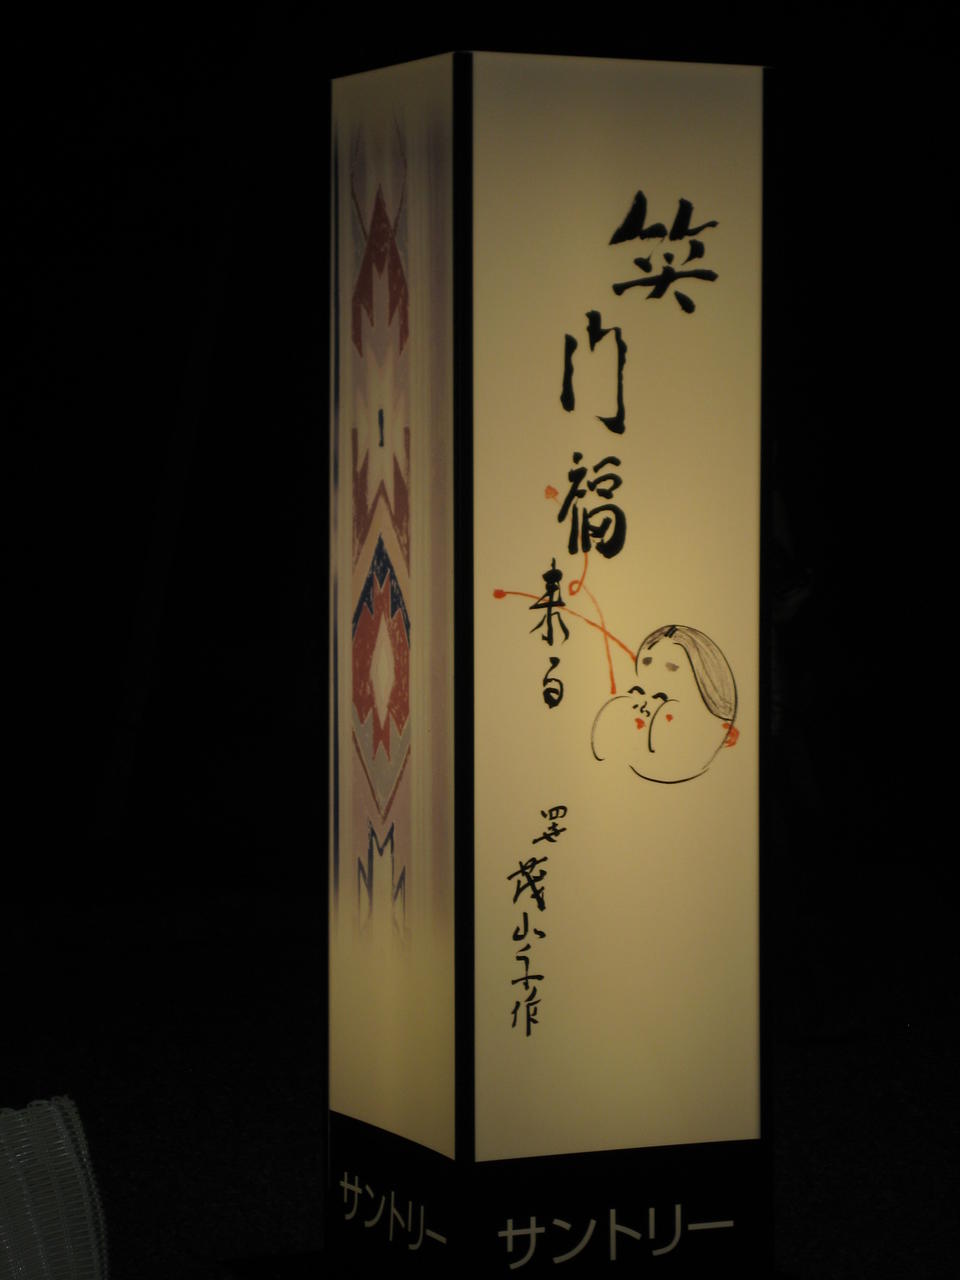 笑門福来
四世
茂山千作
サントリー
サントリー